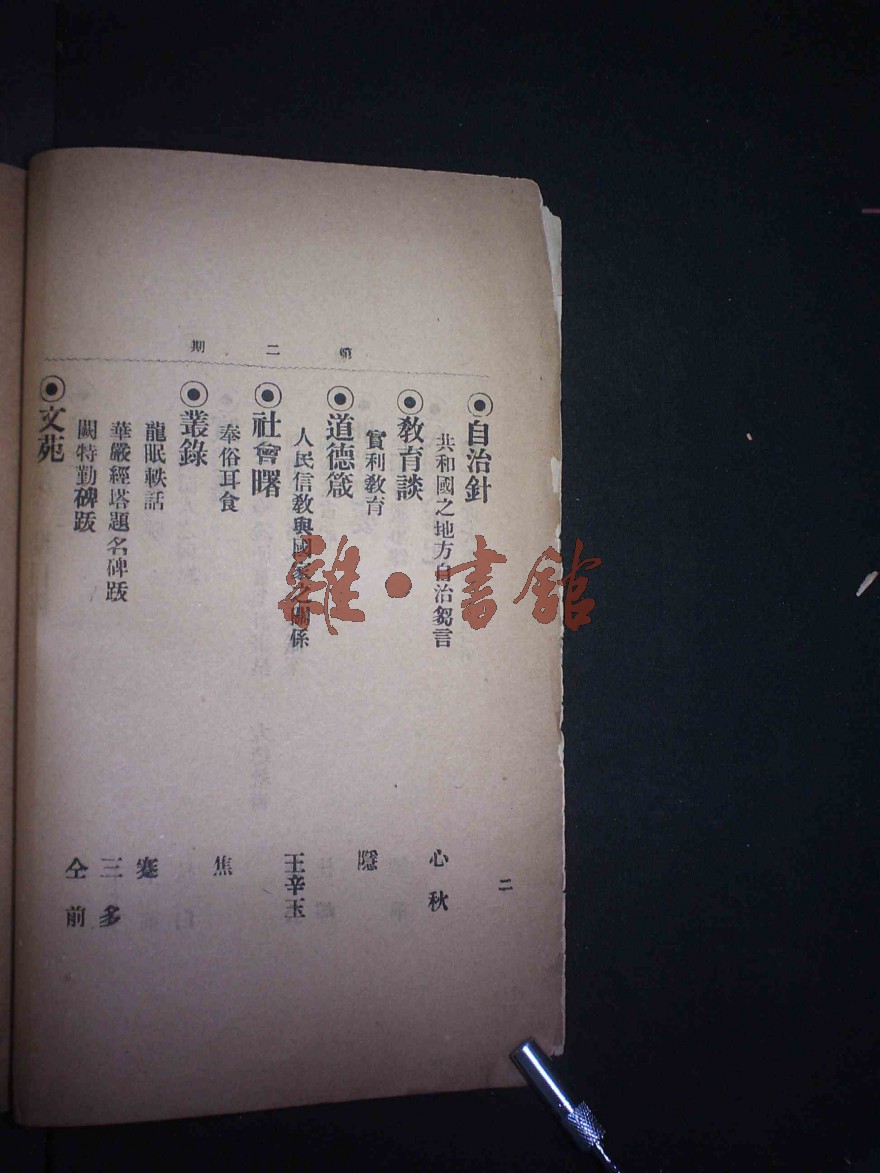 第二期
二
◉自治針
共和國之地方自治芻言 心秋
◉教育談
實利教育 隱
◉道德箴
人民信教與國家之關係 王辛玉
◉社會曙
奉俗耳食 焦
◉叢錄
龍眠軼話 蹇
華嚴經塔題名碑跋 三多
闕特勤碑跋 仝前
◉文苑
雜·書館